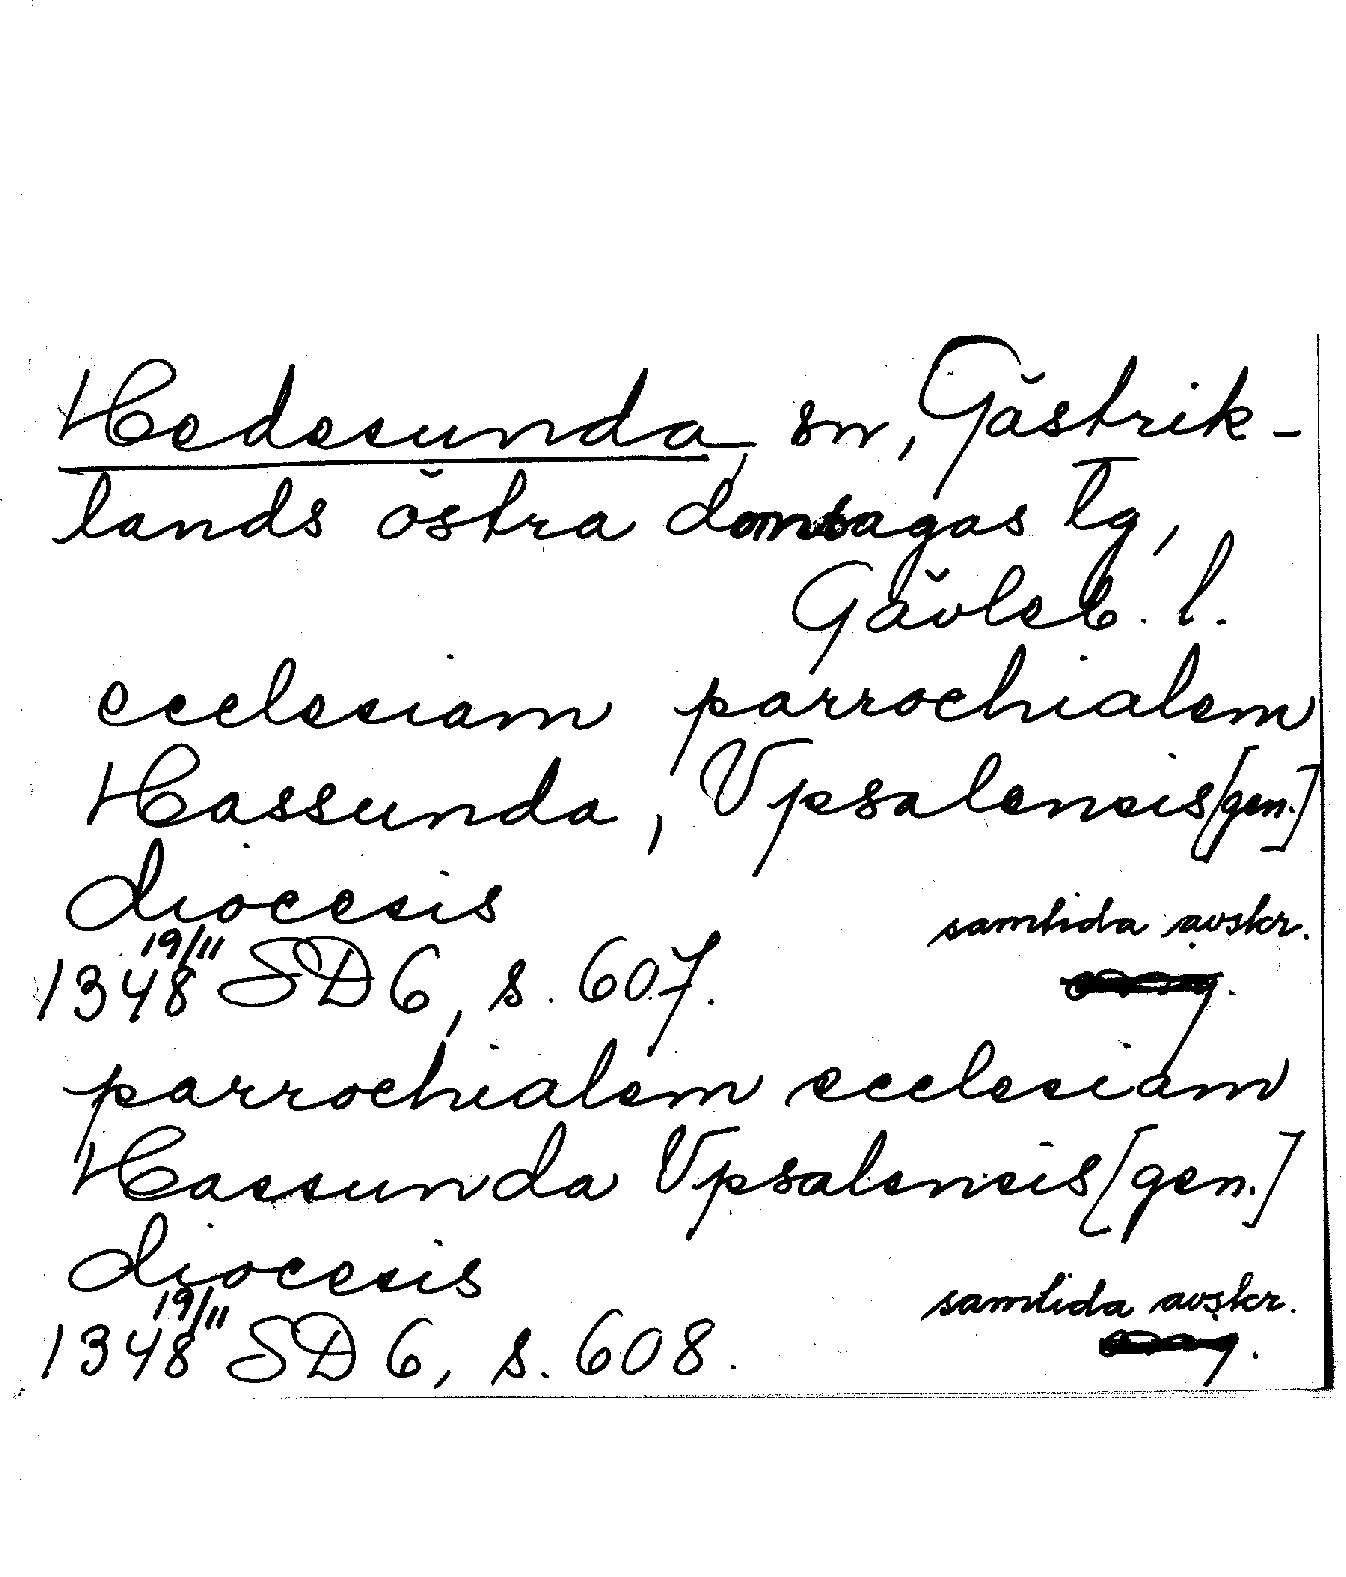 Hedesunda, sn, Gästrik-
lands östra domsagas tg,
Gävleb. l.
ecclesiam parrochialem
Hassunda, Vpsalensis [gen.]
diocesis
samtida avskr.
1348 19/11 SD 6, s. 607.
parrochialem ecclesiam
Hassunda Vpsalensis [gen.]
diocesis
samtida avskr.
1348 19/11 SD 6, s. 608.